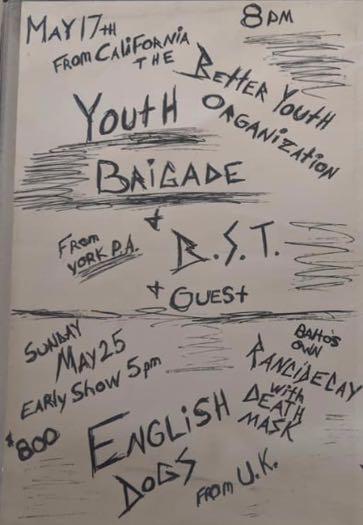 MAY 17TH
8 PM
FROM CALIFORNIA
THE
BETTER YOUTH
ORGANIZATION
YOUTH
BRIGADE
+
FROM
YORK P.A.
R.S.T.
+ GUEST
SUNDAY
MAY 25
EARLY SHOW 5pm
$800
BAltO's
OWN
RANCIDECAY
with
DEATH
MASK
ENGLISH
DOGS
FROM U.K.